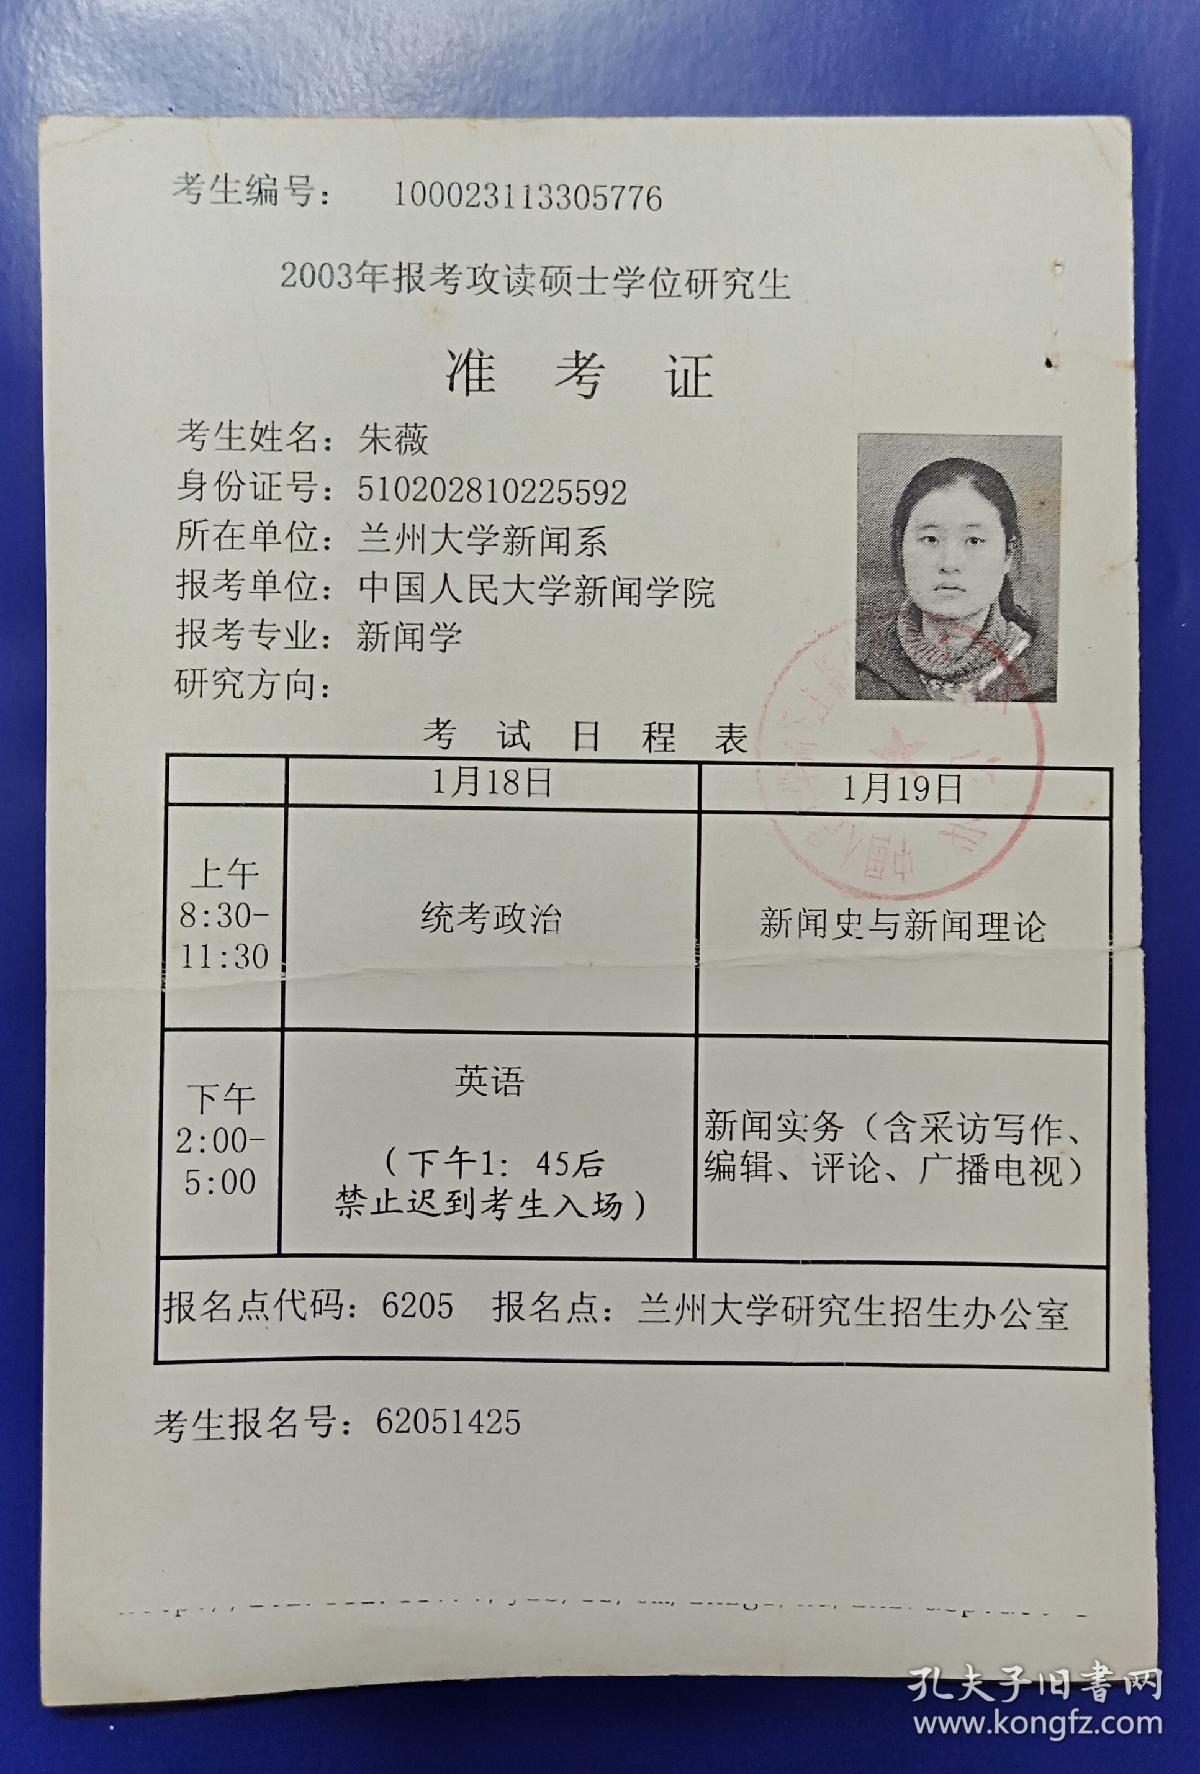 考生编号： 100023113305776
2003年报考攻读硕士学位研究生
准 考 证
考生姓名：朱薇
身份证号：510202810225592
所在单位：兰州大学新闻系
报考单位：中国人民大学新闻学院
报考专业：新闻学
研究方向：
考 试 日 程 表
1月18日 1月19日
上午
8:30-
11:30
统考政治
新闻史与新闻理论
下午
2:00-
5:00
英语
（下午1：45后
禁止迟到考生入场）
新闻实务（含采访写作、
编辑、评论、广播电视）
报名点代码：6205 报名点：兰州大学研究生招生办公室
考生报名号：62051425
孔夫子旧书网
www.kongfz.com